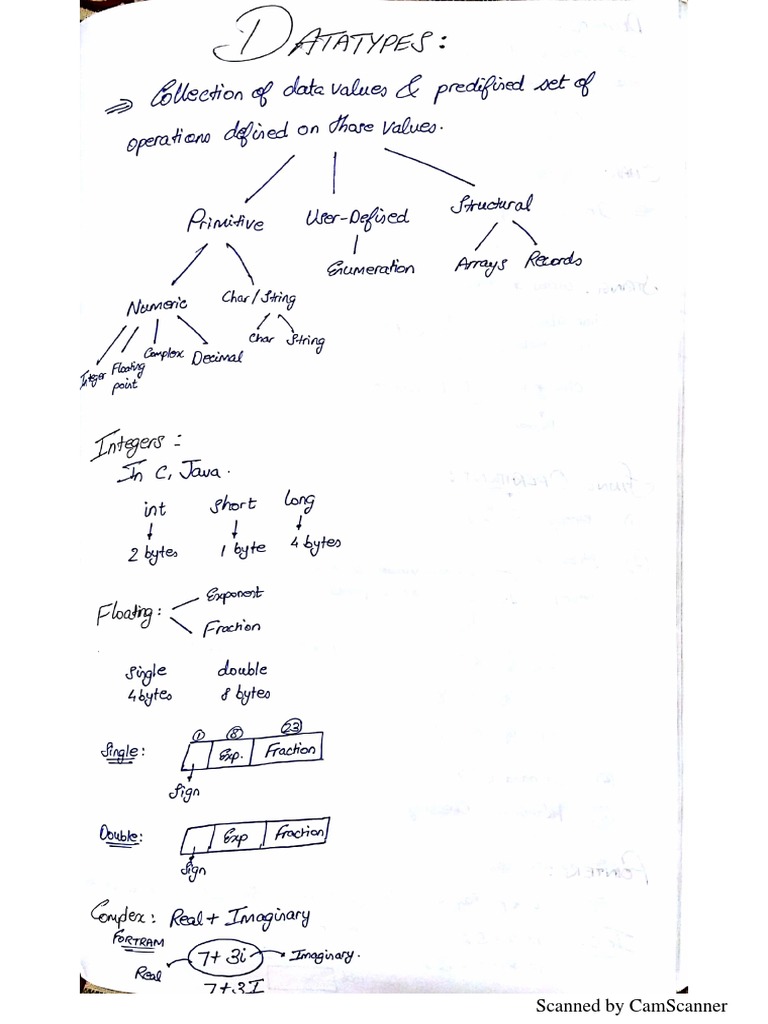 DATATYPES:
⇒ Collection of data values & predifined set of
operations defined on those values.
Primitive User-Defined Structural
Enumeration Arrays Records
Numeric Char/String
Integer Floating point Complex Decimal Char String
Integers:
In C, Java.
int short long
2 bytes 1 byte 4 bytes
Floating: Exponent
Fraction
Single double
4 bytes 8 bytes
1 8 23
Single: Exp. Fraction
Sign
Double: Exp Fraction
Sign
Complex: Real + Imaginary
FORTRAM
Real 7+3i Imaginary.
7+3I
Scanned by CamScanner